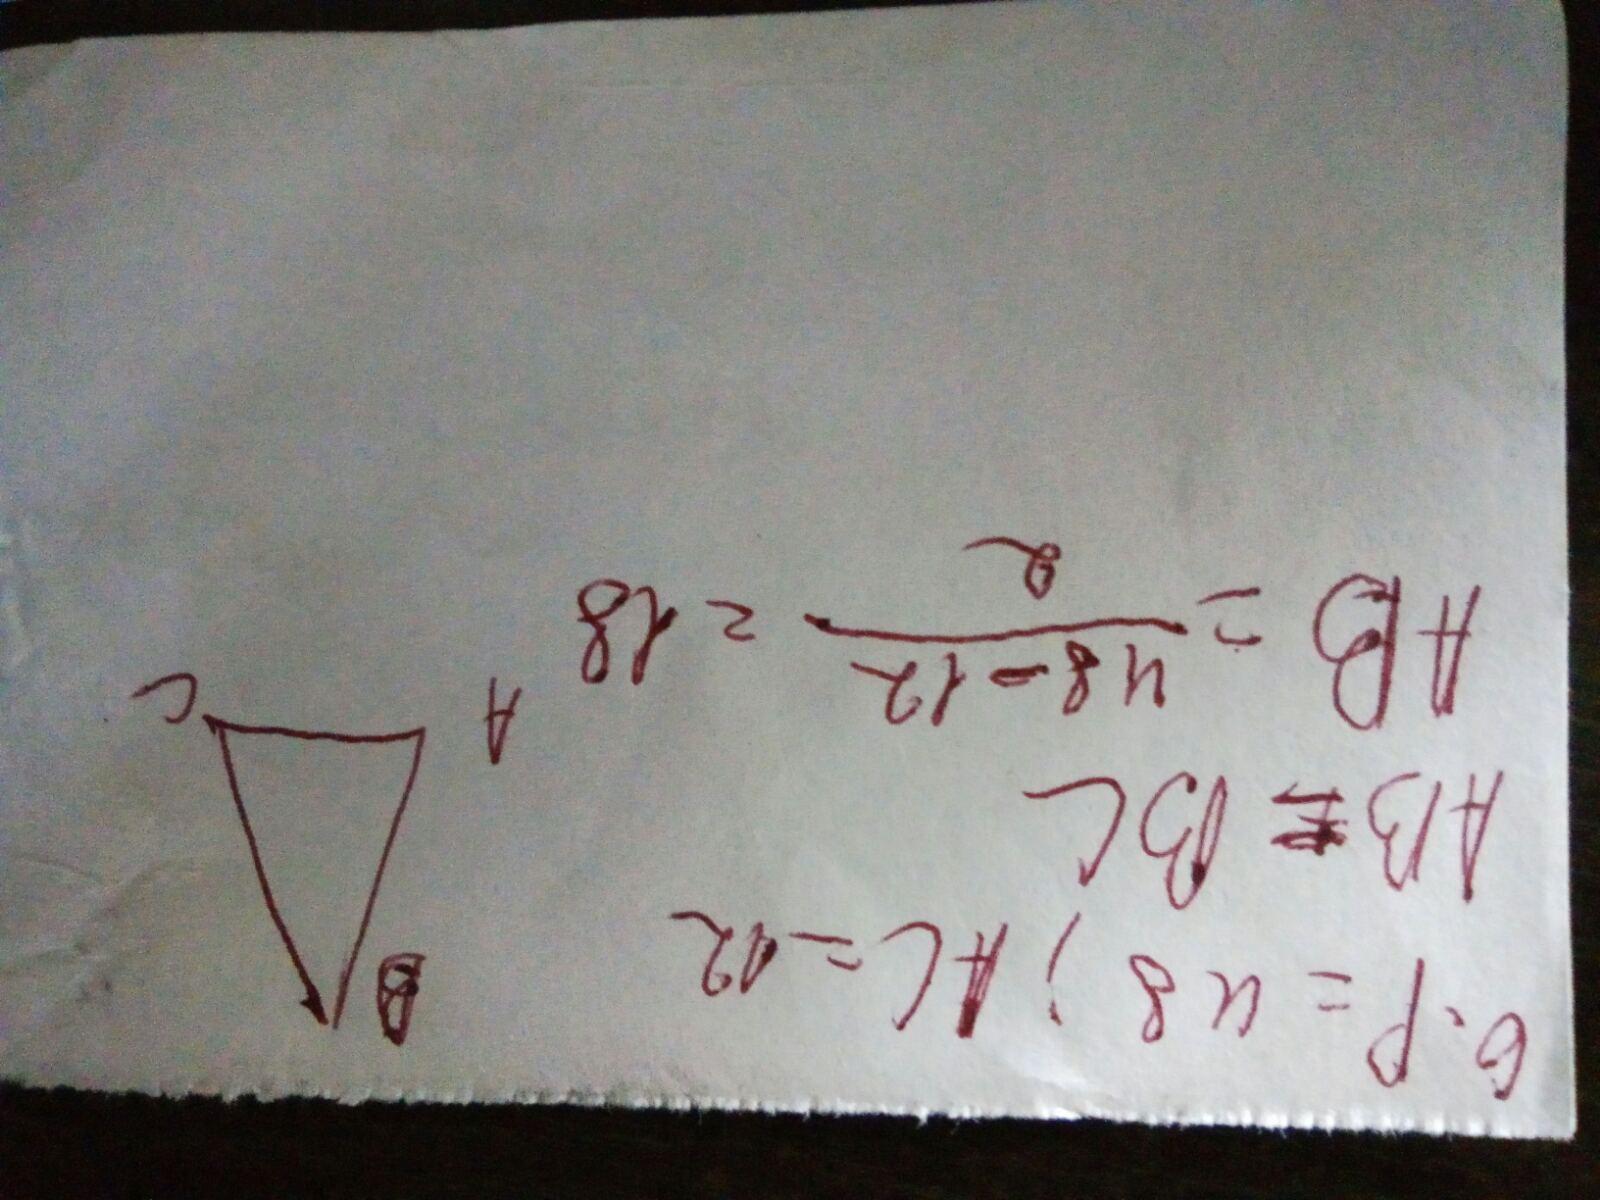 6. P = 48 ; AC = 12
AB = BC
AB = 48 - 12 / 2 = 18
B
A
C